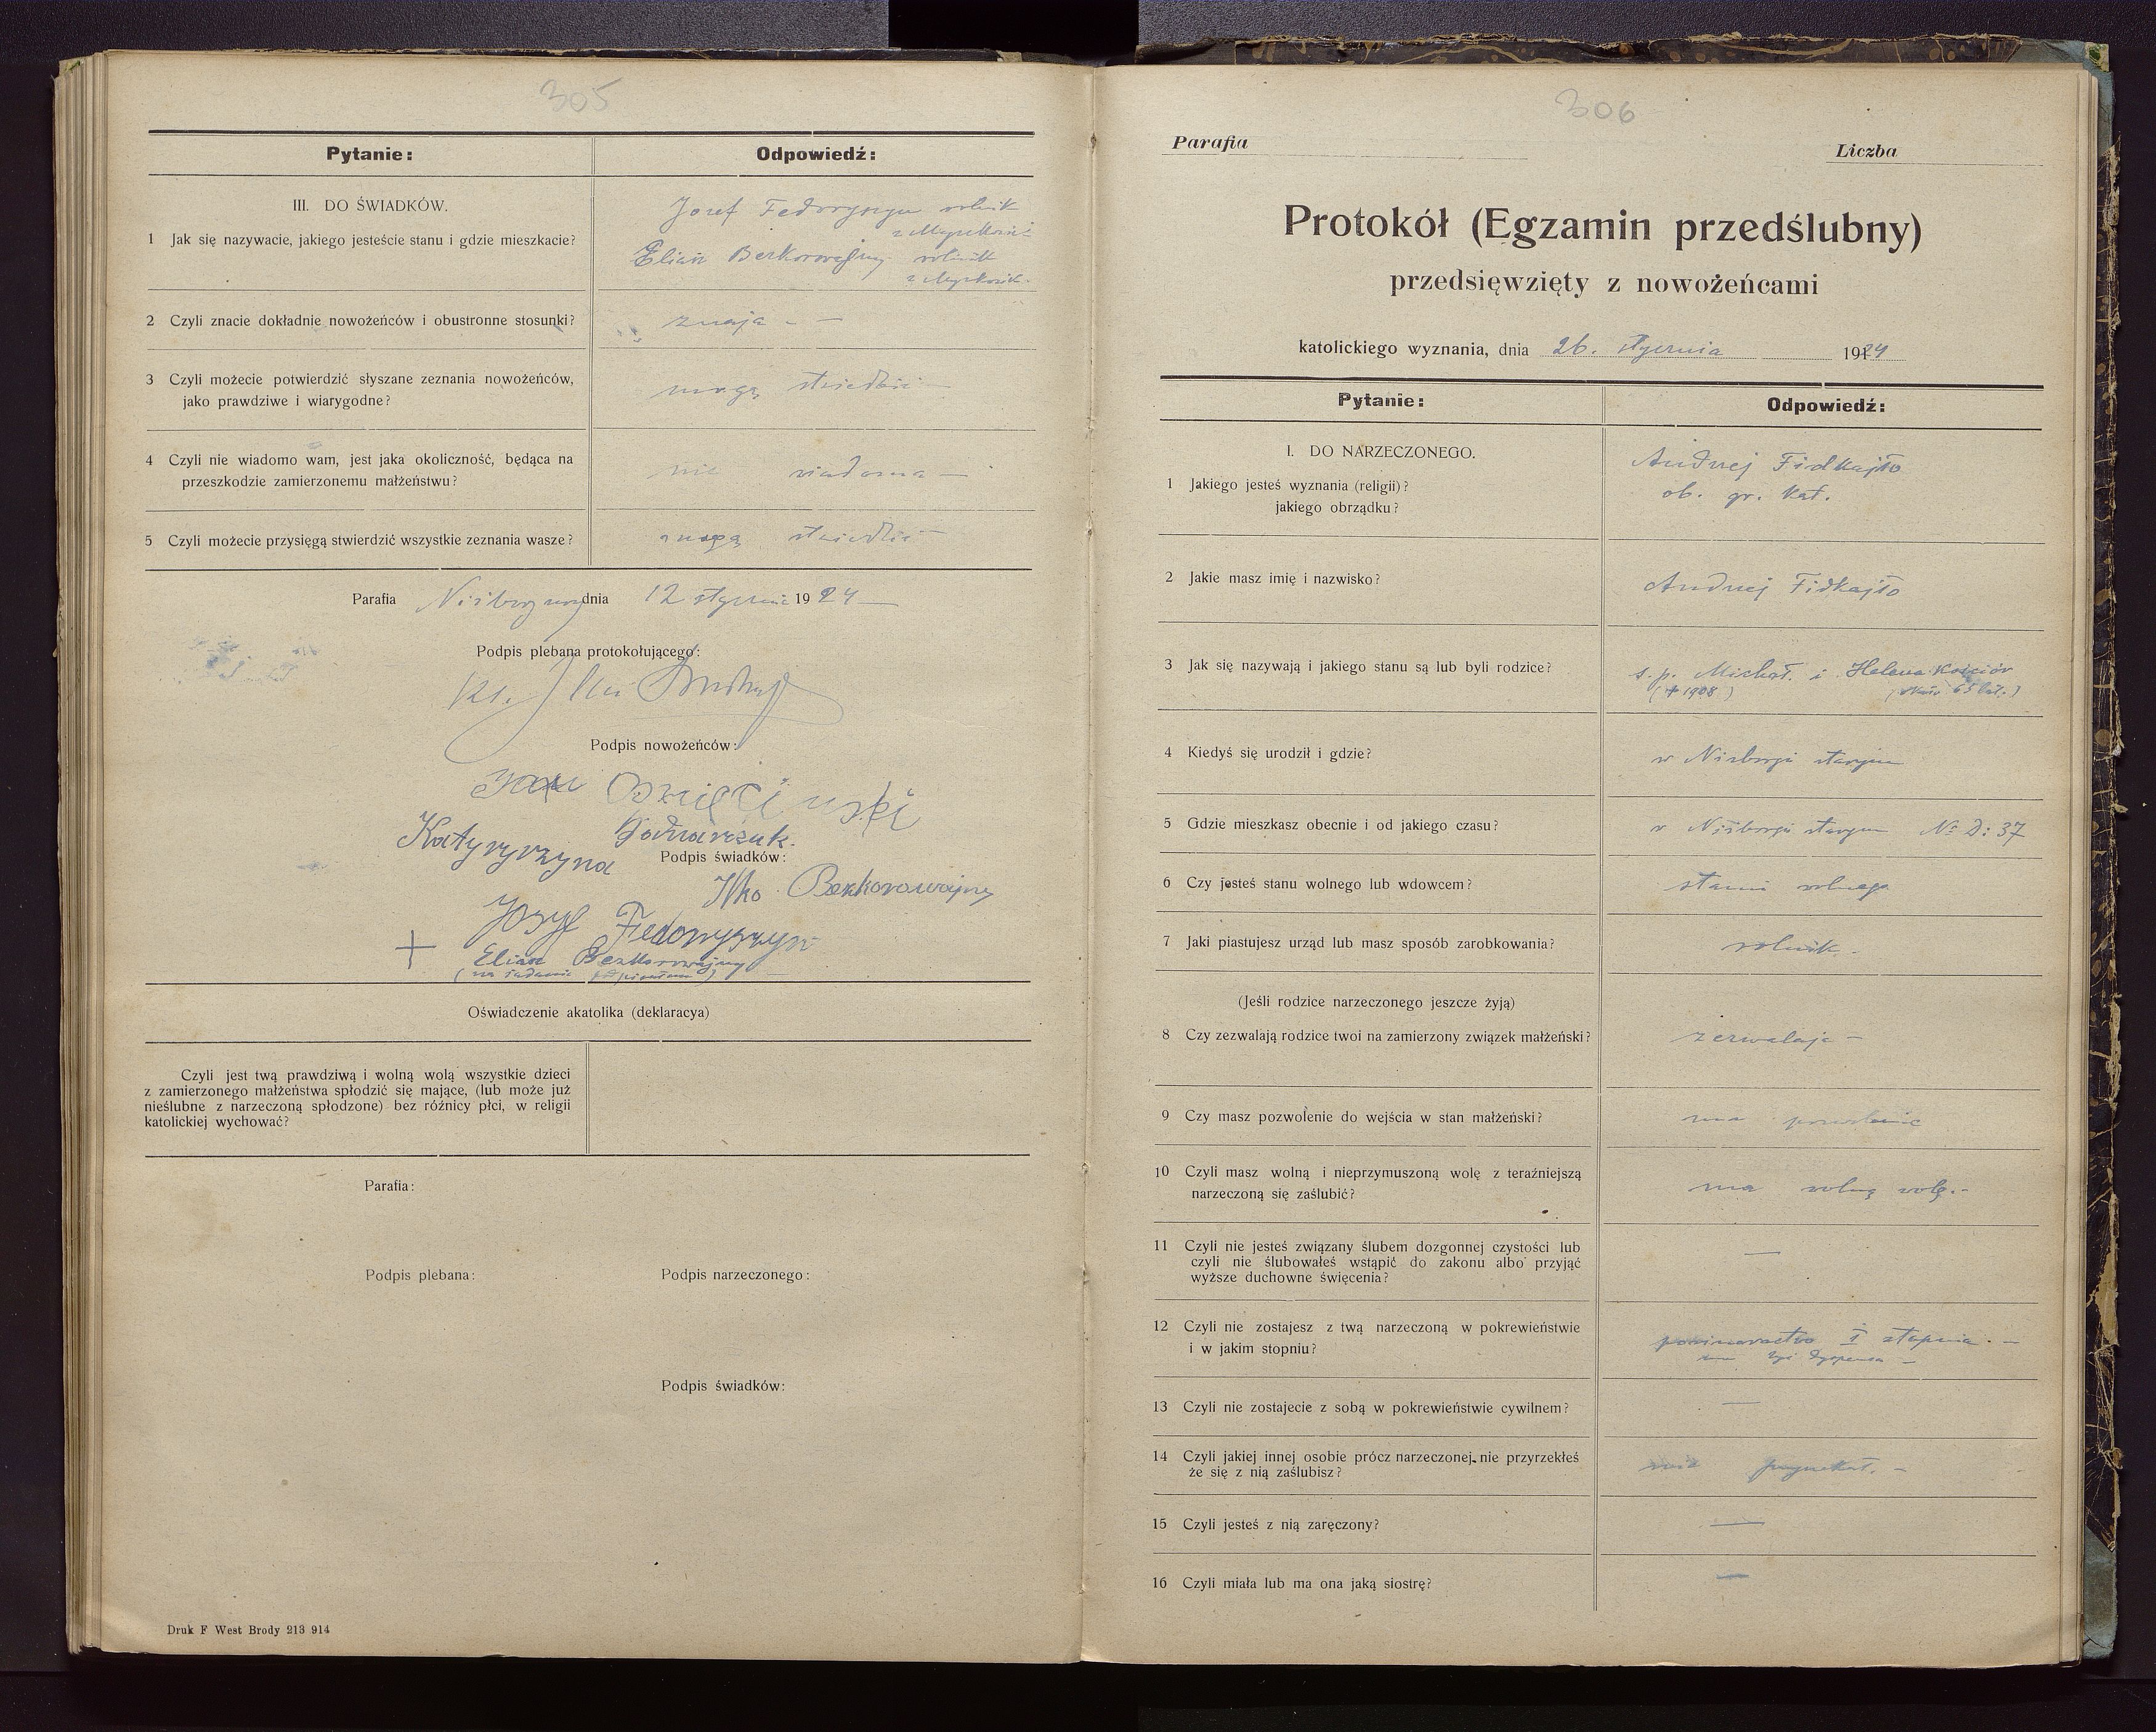 305
Pytanie:
Odpowiedź:
III. DO ŚWIADKÓW.
1 Jak się nazywacie, jakiego jesteście stanu i gdzie mieszkacie?
Josef Fedoryszyn rolnik
Elian Bezkorowajny rolnik
2 Czyli znacie dokładnie nowożeńców i obustronne stosunki?
znają - —
3 Czyli możecie potwierdzić słyszane zeznania nowożeńców,
jako prawdziwe i wiarygodne?
mogą stwierdzić —
4 Czyli nie wiadomo wam, jest jaka okoliczność, będąca na
przeszkodzie zamierzonemu małżeństwu?
nie wiadomo —
5 Czyli możecie przysięgą stwierdzić wszystkie zeznania wasze?
mogą stwierdzić —
Parafia dnia 12 stycznia 1924 —
Podpis plebana protokołującego:
Ks.
Podpis nowożeńców:
Jan
Katyryrzyna Bodnarzuk.
Podpis świadków:
Ilko Bezkorowajny
Josyf Fedoryszyn
+ Elian Bezkorowajny
Oświadczenie akatolika (deklaracya)
Czyli jest twą prawdziwą i wolną wolą wszystkie dzieci
z zamierzonego małżeństwa spłodzić się mające, (lub może już
nieślubne z narzeczoną spłodzone) bez różnicy płci, w religii
katolickiej wychować?
Parafia:
Podpis plebana:
Podpis narzeczonego:
Podpis świadków:
Druk F West Brody 213 914
306
Parafia
Liczba
Protokół (Egzamin przedślubny)
przedsięwzięty z nowożeńcami
katolickiego wyznania, dnia 26. stycznia 1924
Pytanie:
Odpowiedź:
I. DO NARZECZONEGO.
1 Jakiego jesteś wyznania (religii)?
jakiego obrządku?
Andrzej Fidkajło
ob. gr. kat.
2 Jakie masz imię i nazwisko?
Andrzej Fidkajło
3 Jak się nazywają i jakiego stanu są lub byli rodzice?
s. p. Michał. i Helena Kościór
(+ 1908) 65 lat.)
4 Kiedyś się urodził i gdzie?
w Niżborgu starym
5 Gdzie mieszkasz obecnie i od jakiego czasu?
w Niżborgu starym № D: 37
6 Czy jesteś stanu wolnego lub wdowcem?
stanu wolnego
7 Jaki piastujesz urząd lub masz sposób zarobkowania?
rolnik. -
(Jeśli rodzice narzeczonego jeszcze żyją)
8 Czy zezwalają rodzice twoi na zamierzony związek małżeński?
zezwalają —
9 Czy masz pozwolenie do wejścia w stan małżeński?
ma pozwolenie
10 Czyli masz wolną i nieprzymuszoną wolę z teraźniejszą
narzeczoną się zaślubić?
ma wolną wolę. -
11 Czyli nie jesteś związany ślubem dozgonnej czystości lub
czyli nie ślubowałeś wstąpić do zakonu albo przyjąć
wyższe duchowne święcenia?
—
12 Czyli nie zostajesz z twą narzeczoną w pokrewieństwie
i w jakim stopniu?
powinowactwo I stopnia. —
13 Czyli nie zostajecie z sobą w pokrewieństwie cywilnem?
—
14 Czyli jakiej innej osobie prócz narzeczonej nie przyrzekłeś
że się z nią zaślubisz?
nie przyrzekał. -
15 Czyli jesteś z nią zaręczony?
—
16 Czyli miała lub ma ona jaką siostrę?
—